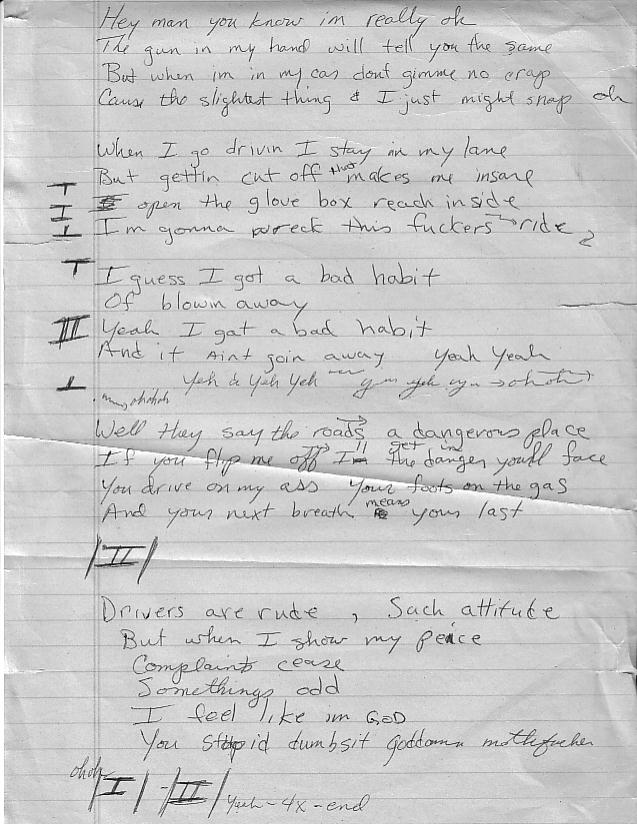 Hey man you know im really ok
The gun in my hand will tell you the same
But when im in my car dont gimme no crap
Cause the slightest thing & I just might snap oh
When I go drivin I stay in my lane
But gettin cut off that makes me insane
I open the glove box reach inside
I Im gonna wreck this fuckers ride
I guess I got a bad habit
Of blown away
III Yeah I got a bad habit
And it Aint goin away Yeah Yeah
Yeh Yeh Yeh ohoh
ohohoh
Well they say the roads a dangerous place
If you flip me off I'll get in the danger youll face
You drive on my ass Your foots on the gas
And your next breath means your last
II
Drivers are rude , Such attitude
But when I show my peice
Complaints cease
Somethings odd
I feel like im GOD
You stupid dumbsit goddamn mothefucher
ohoh
I - II Yeah - 4x - end